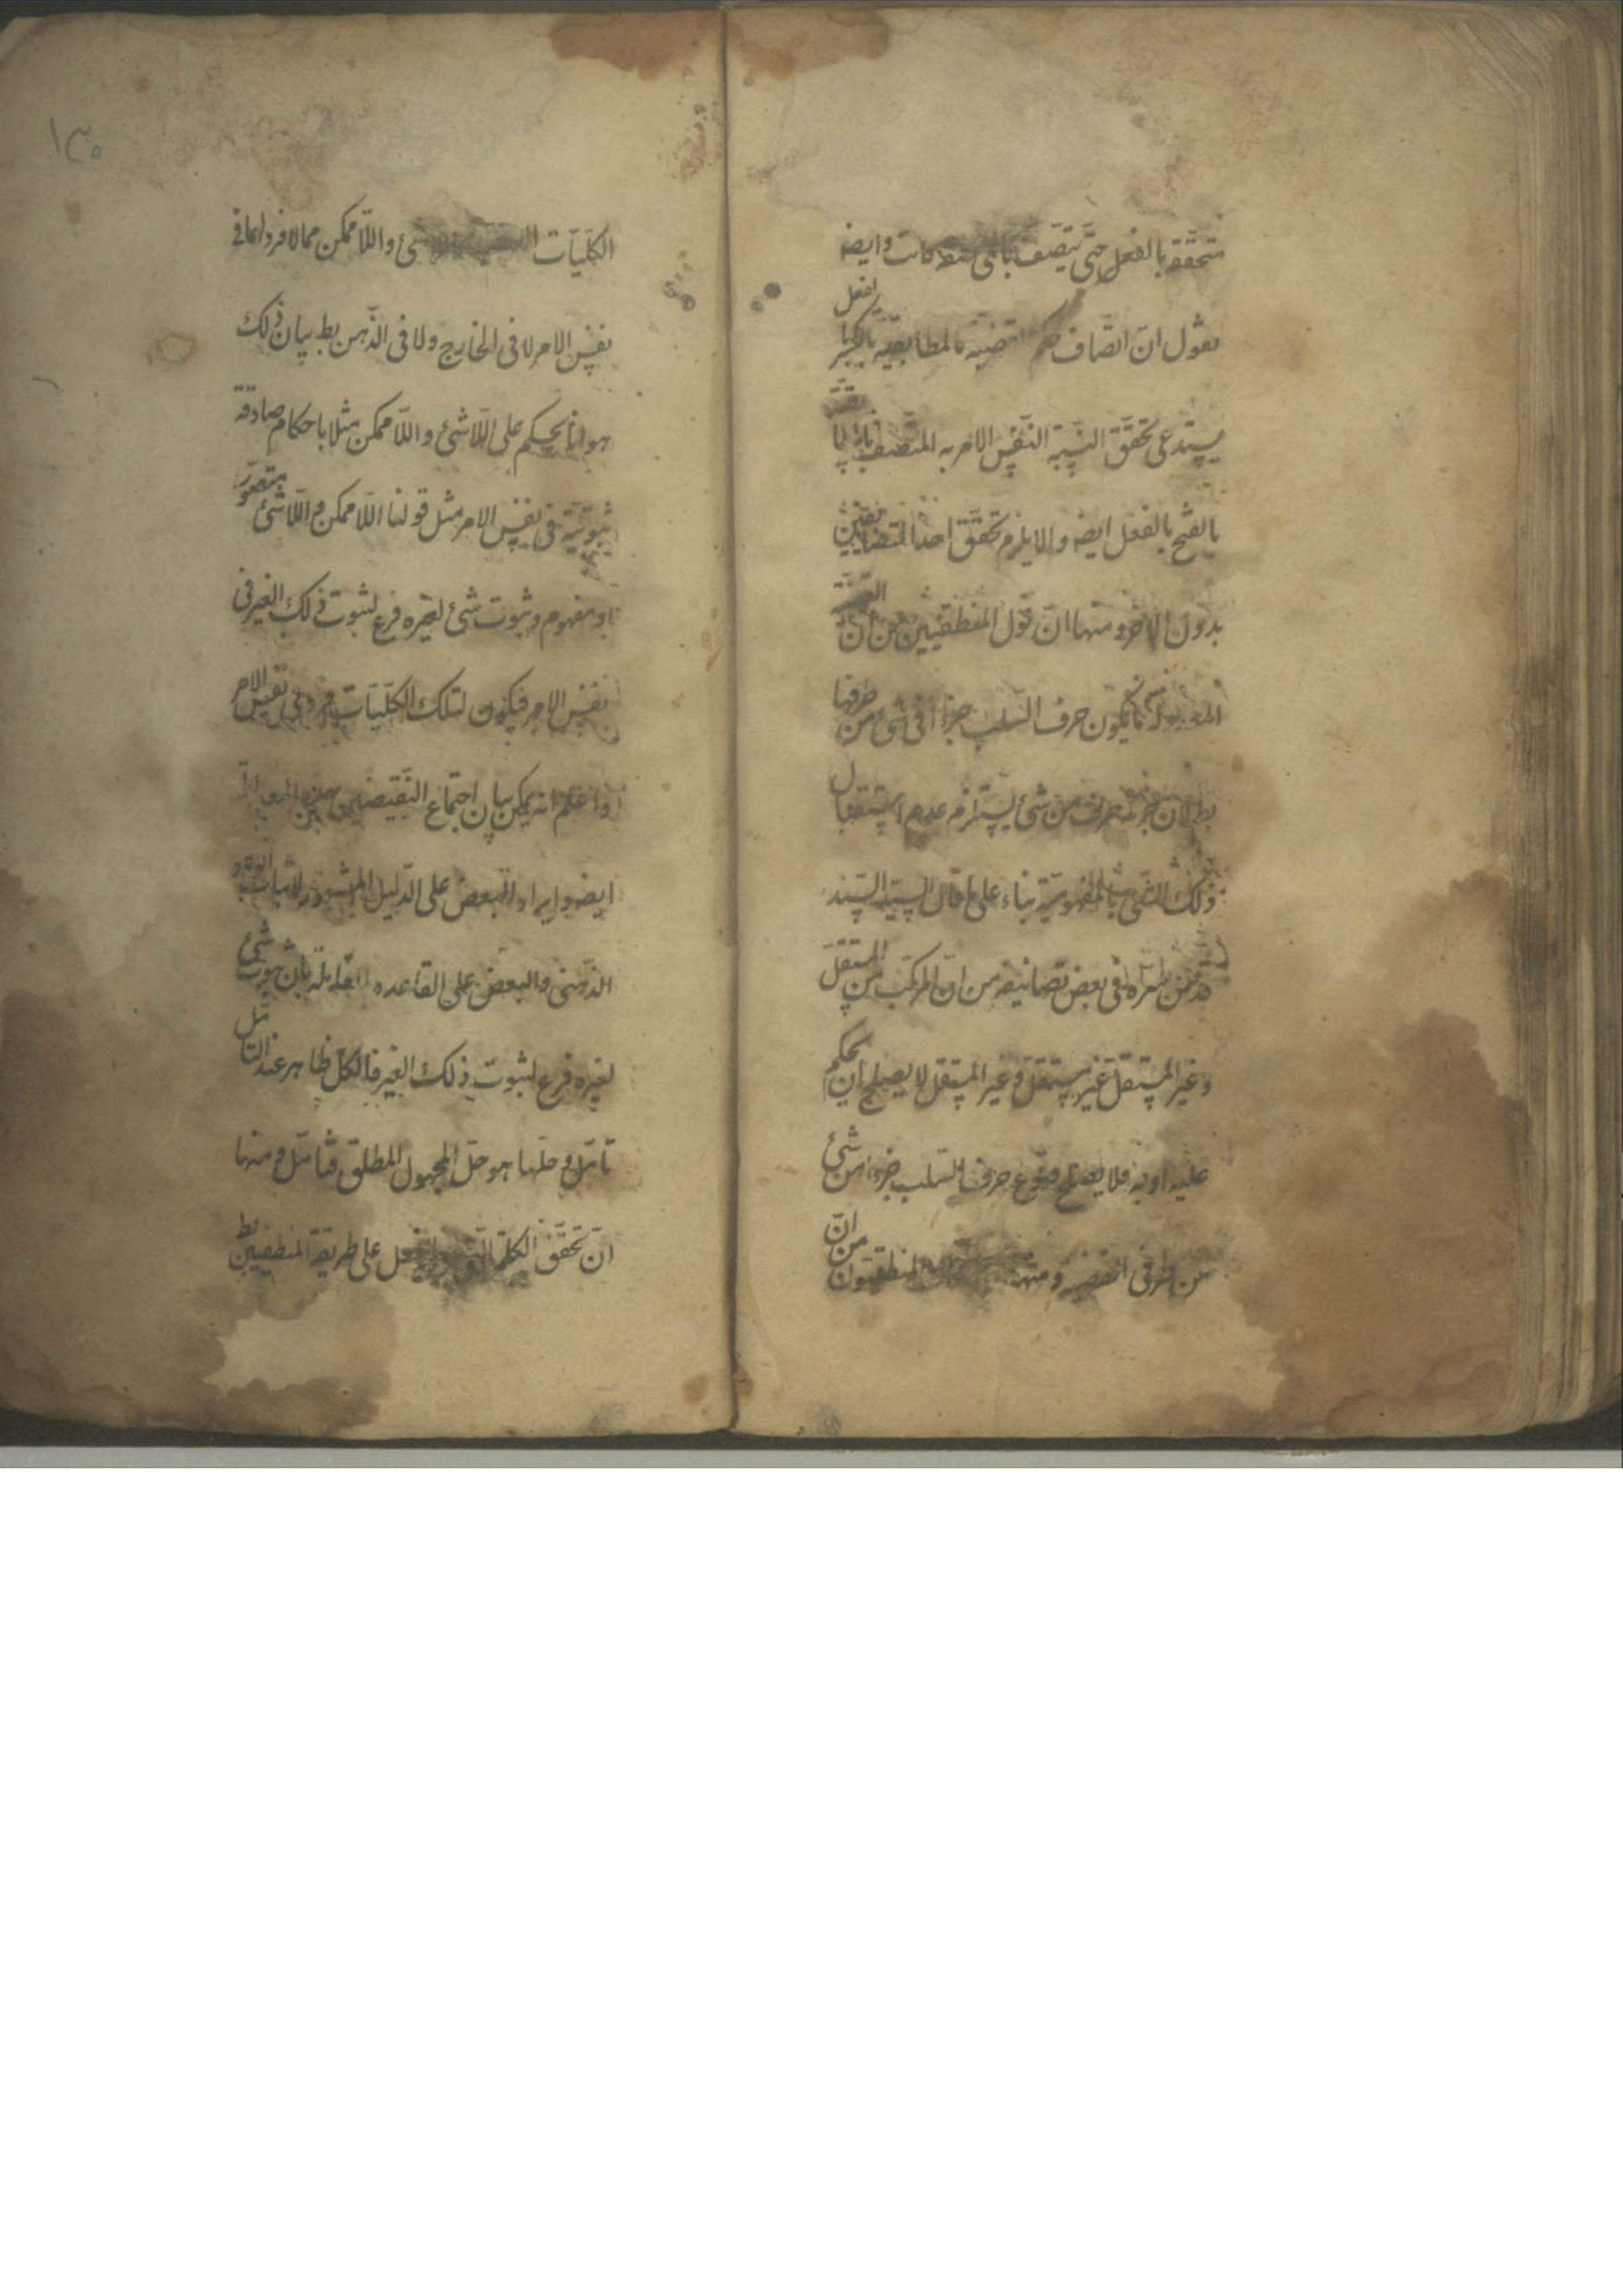 متحققة بالفعل حتى يتصف بأى كانت وايضه
نقول ان اتصاف حكم القضية بالمطابقية بالكسر بالفعل
يستدعى تحقق النسبة النفس الامرية المتصف
بالفتح بالفعل ايضه والا يلزم تحقق احد المتضايفين
بدون الاخر ومنها ان قول المنطقيين من ان القضية
المعدولة ما يكون حرف السلب جزءا فى شئ من طرفيها
بط لان جزئية حرف من شئ يستلزم عدم استقلال
ذلك الشئ بالمفهومية بناء على ما قال السيد السند
قدس سره فى بعض تصانيفه من ان المركب من المستقل
وغير المستقل غير مستقل وغير المستقل لا يصلح ان يحكم
عليه او به فلا يصلح وقوع حرف السلب جزءا من شئ
من طرفى القضية ومنها المنطقيون من ان
١٣٠
الكليات واللاممكن مما لا فرد لها فى
نفس الامر لا فى الخارج ولا فى الذهن بط بيان ذلك
هو انا نحكم على اللاشئ واللاممكن مثلا باحكام صادقة
ثبوتية فى نفس الامر مثل قولنا اللاممكن واللاشئ متصور
او مفهوم وثبوت شئ لغيره فرع لثبوت ذلك الغير فى
نفس الامر فيكون لتلك الكليات فرد فى نفس الامر
واعلم انه يمكن بيان اجتماع النقيضين بهذه
ايضه وايراد البعض على الدليل المشهور لاثبات الوجود
الذهنى والبعض على القاعدة القايلة بان ثبوت شئ
لغيره فرع لثبوت ذلك الغير فالكل ظاهر عند التأمل
تأمل وحلها هو حل المجهول المطلق فتأمل ومنها
ان تحقق الكلى بالفعل على طريقة المنطقيين بط